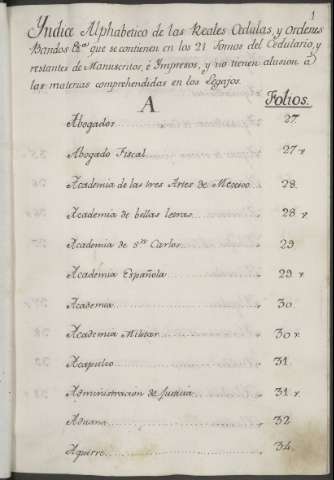 1
Yndice Alphabetico de las Reales Cedulas, y Ordenes
Bandos &ca. que se contienen en los 21 tomos del Cedulario, y
restantes de Manuscritos, é Impresos, y no tienen alusion á
las materias comprehendidas en los Legajos.
A Folios.
Abogados 27.
Abogado Fiscal 27 v
Academia de las tres Artes de Mexico 28.
Academia de bellas letras 28 v
Academia de Sn. Carlos 29
Academia Española 29 v
Academia 30
Academia Militar 30 v.
Acapulco 31.
Administracion de Justicia 31 v
Aduana 32
Aguirre 34.